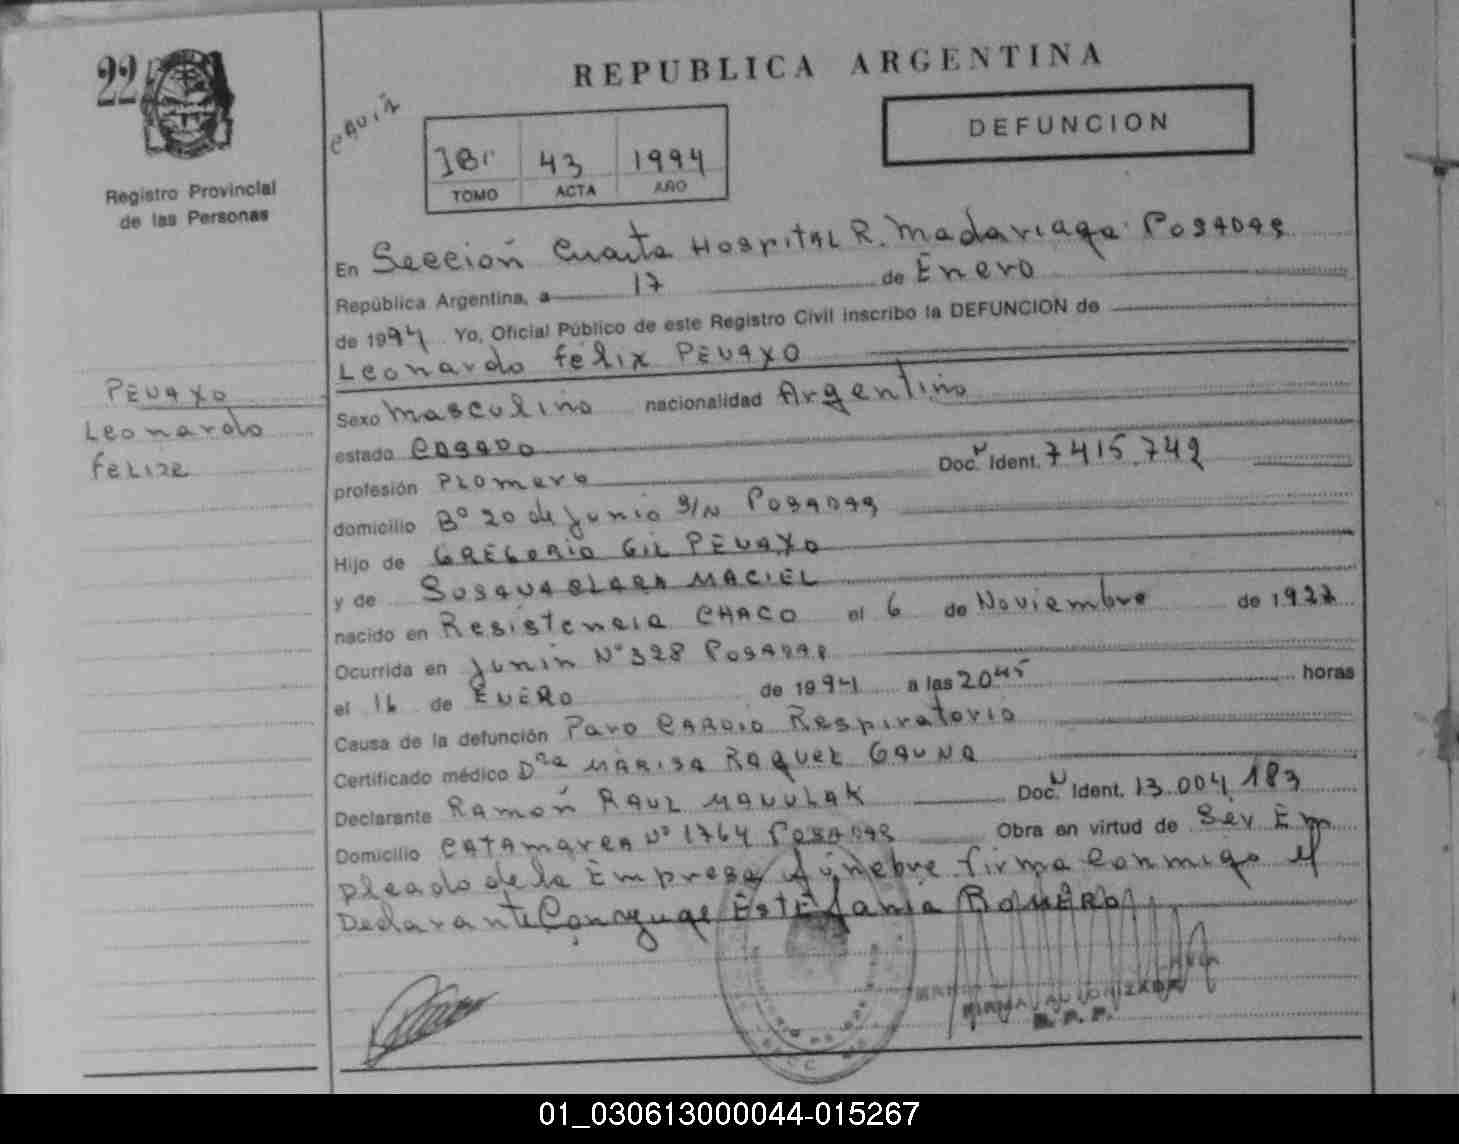 22
Registro Provincial
de las Personas
REPUBLICA ARGENTINA
DEFUNCION
43 1994
TOMO ACTA AÑO
En Sección Cuarta Hospital R. Madariaga Posadas
República Argentina, a 17 de Enero
de 1994 Yo, Oficial Público de este Registro Civil inscribo la DEFUNCION de
Leonardo Felix PEUAYO
PEUAYO
Leonardo
FELIZE
Sexo Masculino nacionalidad Argentino
estado CASADO
profesión Plomero Doc. N Ident. 7415.742
domicilio Bº 20 de Junio S/N POSADAS
Hijo de GREGORIO GIL PEUAYO
y de SUSANA CLARA MACIEL
nacido en Resistencia CHACO el 6 de Noviembre de 1922
Ocurrida en Junin Nº 328 POSADAS
el 16 de ENERO de 1994 a las 20 45 horas
Causa de la defunción Paro CARDIO Respiratorio
Certificado médico Dra MARISA RAQUEL GAUNA
Declarante RAMON RAUL MANULAK Doc. N Ident. 13.004.183
Domicilio CATAMARCA Nº 1764 POSADAS Obra en virtud de Ser Em
pleado de la Empresa fúnebre firma Conmigo el
Declarante Conyuge EstEfania ROMERO
FIRMA AUTORIZADA
R. P. P.
01_030613000044-015267